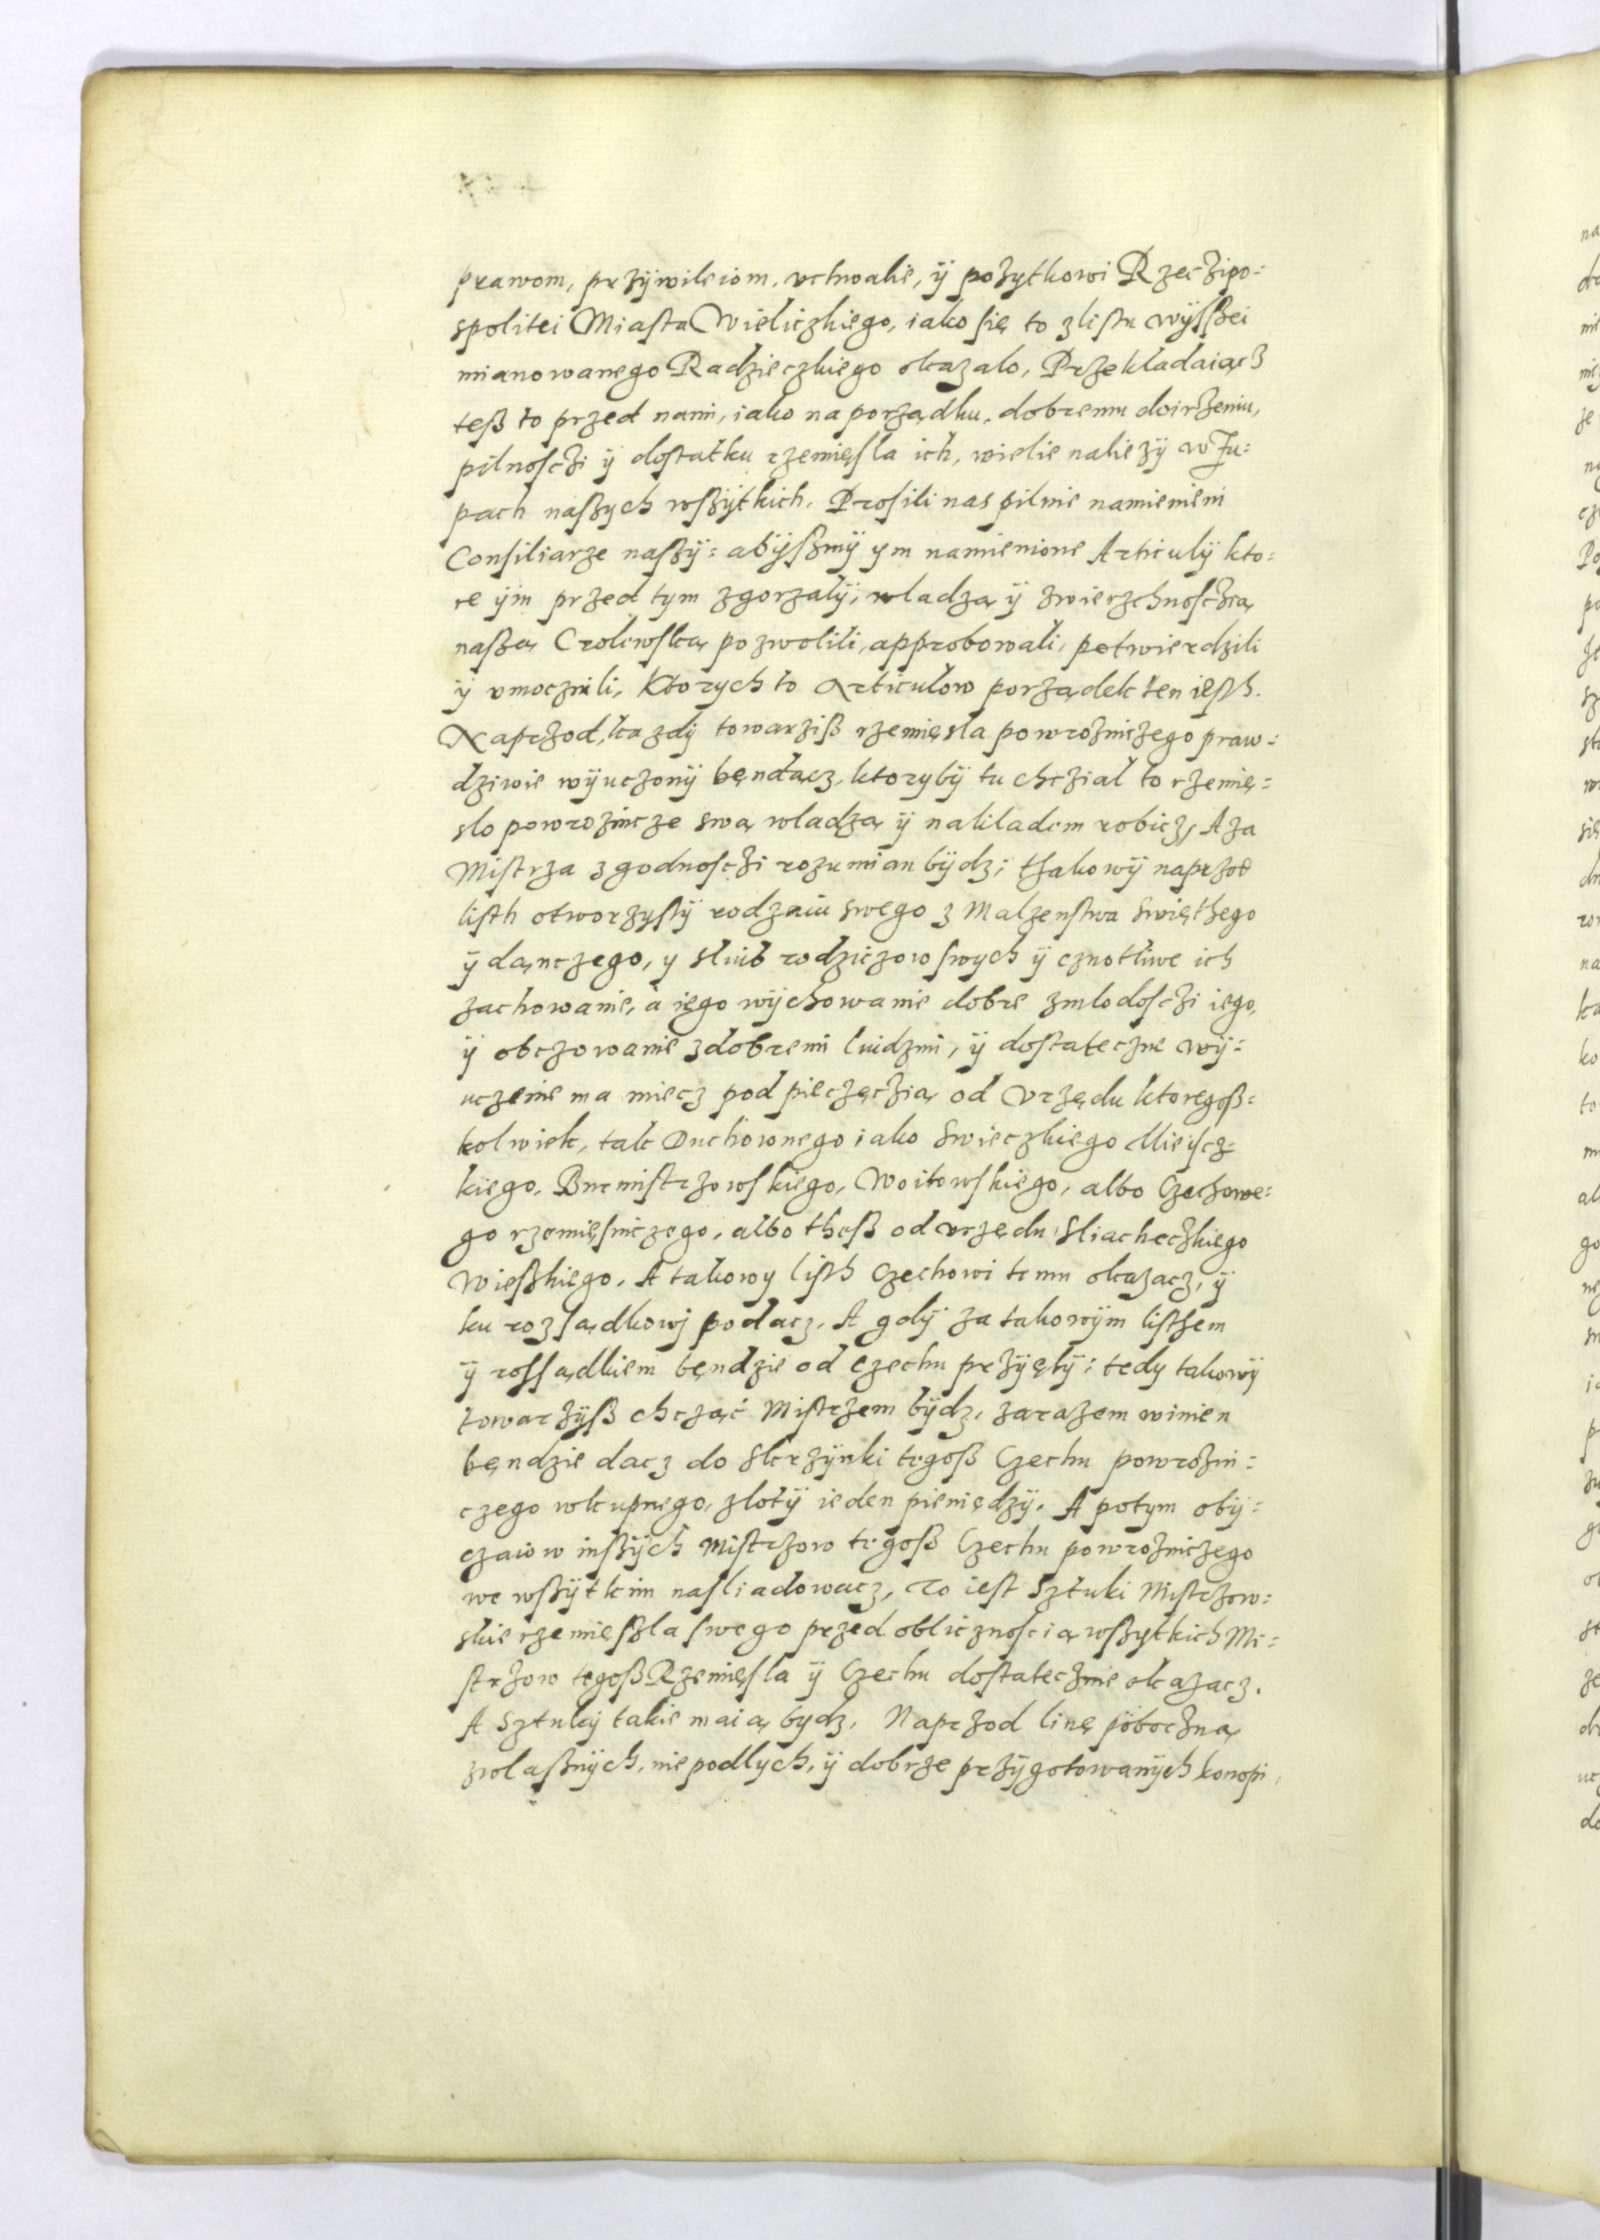 prawom, przÿwileiom, vchwalie, ÿ pożytkowi Rzecżipo=
spolitei Miasta Wieliczkiego, iako się to zlistu wÿsßei
mianowanego Radzieczkiego okazalo, Przekladaiącz
teß to przed nami, iako na porżądku, dobremu doirżeniu,
pilnoscżi ÿ dostatku rzemięsla ich, wielie należÿ w Żu=
pach naßzych wßzÿtkich. Prosili nas pilnie namienieni
Consiliarze naßzÿ: abÿsßmÿ ym namienione Articulÿ kto=
re ÿm przed tym zgorzalÿ, wladzą ÿ zwierzchnoscżią
naßzą Crolewską pozwolili, approbowali, potwierdzili
ÿ vmocznili, Ktorych to Articulow porżądek ten iesth.
Naprżod, każdÿ towarziß rzemięsla powrożniczego praw=
dziwie wÿuczonÿ będącz, ktorybÿ tu chcżial to rżemię=
slo powrożnicze swą wladzą ÿ nakladem robicz, A za
Mistrza z godnoscżi rozumian bÿdz; thakowÿ naprżod
listh otworzystÿ rodzaiu swego z Malżenstwa Swięthego
ÿ dąnczego, y slub rodziczow swych ÿ cznotliwe ich
zachowanie, à iego wÿchowanie dobre zmlodoscżi iego,
ÿ obczowanie zdobremi luidzmi, ÿ dostateczne wÿ=
uczenie ma miecz pod pieczęcżią od Vrzędu ktoregoß=
kolwiek, tak Duchownego iako Swieczkiego Mieÿscz=
kiego, Burmistrzowskiego, Woitowskiego, albo Czechowe=
go rzemięsniczego, albo theß od vrzędu Sliacheczkiego
Wießkiego. A takowy listh Czechowi temu okazacz, ÿ
ku rozsądkowj podacz. A gdÿ za takowÿm listhem
ÿ rossądkiem będzie od Czechu prżÿętÿ: tedy takowÿ
towarżÿß chcząc Mistrzem bÿdz, zarazem winien
będzie dacz do Skrzÿnki tegoß Czechu powrożni=
czego wkupnego, zlotÿ ieden pieniędzÿ. A potym obÿ=
czaiow inßzÿch Mistrżow tegoß Czechu powrożniczego
we wßzÿtkim nasliadowacz, To iest Sztuki Mistrżow=
skie rzemięsla swego przed oblicznoscią wßzytkich Mi=
strżow tegoß Rzemięsla ÿ Czechu dostatecżnie okazacz.
A Sztukj takie maią bydz, Naprżod linę pobocżną
zwlaßnÿch, nie podlych, ÿ dobrze prżÿgotowanÿch konopi,